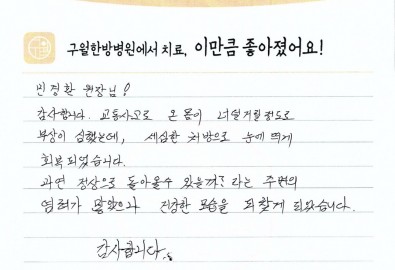 구월한방병원에서 치료, 이만큼 좋아졌어요!
빈경환 원장님!
감사합니다. 교통사고로 온 몸이 너덜거릴정도로
부상이 심했는데, 세심한 처방으로 눈에 띄게
회복되었습니다.
과연 정상으로 돌아올수 있을까? 라는 주변의
염려가 많았으나 건강한 모습을 되찾게 되었습니다.
감사합니다.